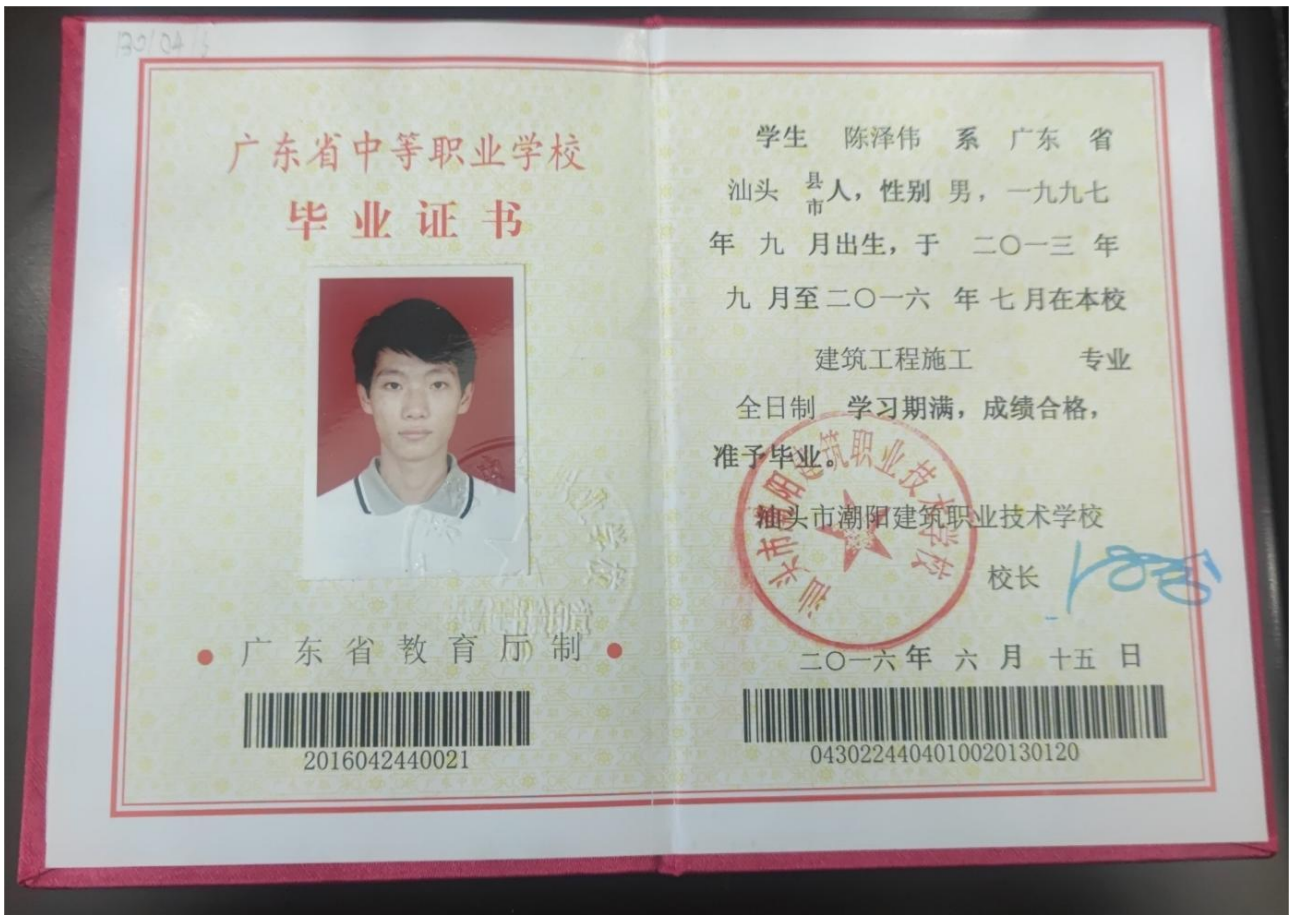 广东省中等职业学校
毕业证书
广东省教育厅制
2016042440021
学生 陈泽伟 系 广东 省
汕头 县市人，性别 男，一九九七
年 九 月出生，于 二〇一三 年
九 月至二〇一六 年 七月在本校
建筑工程施工 专业
全日制 学习期满，成绩合格，
准予毕业。
汕头市潮阳建筑职业技术学校
汕头市潮阳建筑职业技术学校
校长
二〇一六年 六 月 十五 日
0430224404010020130120